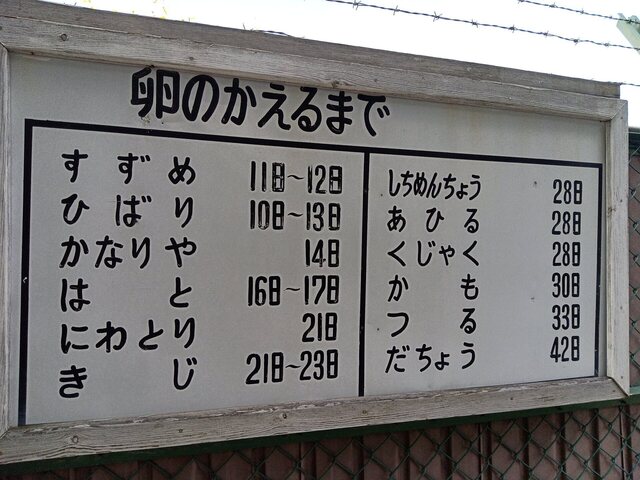 卵のかえるまで
すずめ 11日～12日
ひばり 10日～13日
かなりや 14日
はと 16日～17日
にわとり 21日
きじ 21日～23日
しちめんちょう 28日
あひる 28日
くじゃく 28日
かも 30日
つる 33日
だちょう 42日